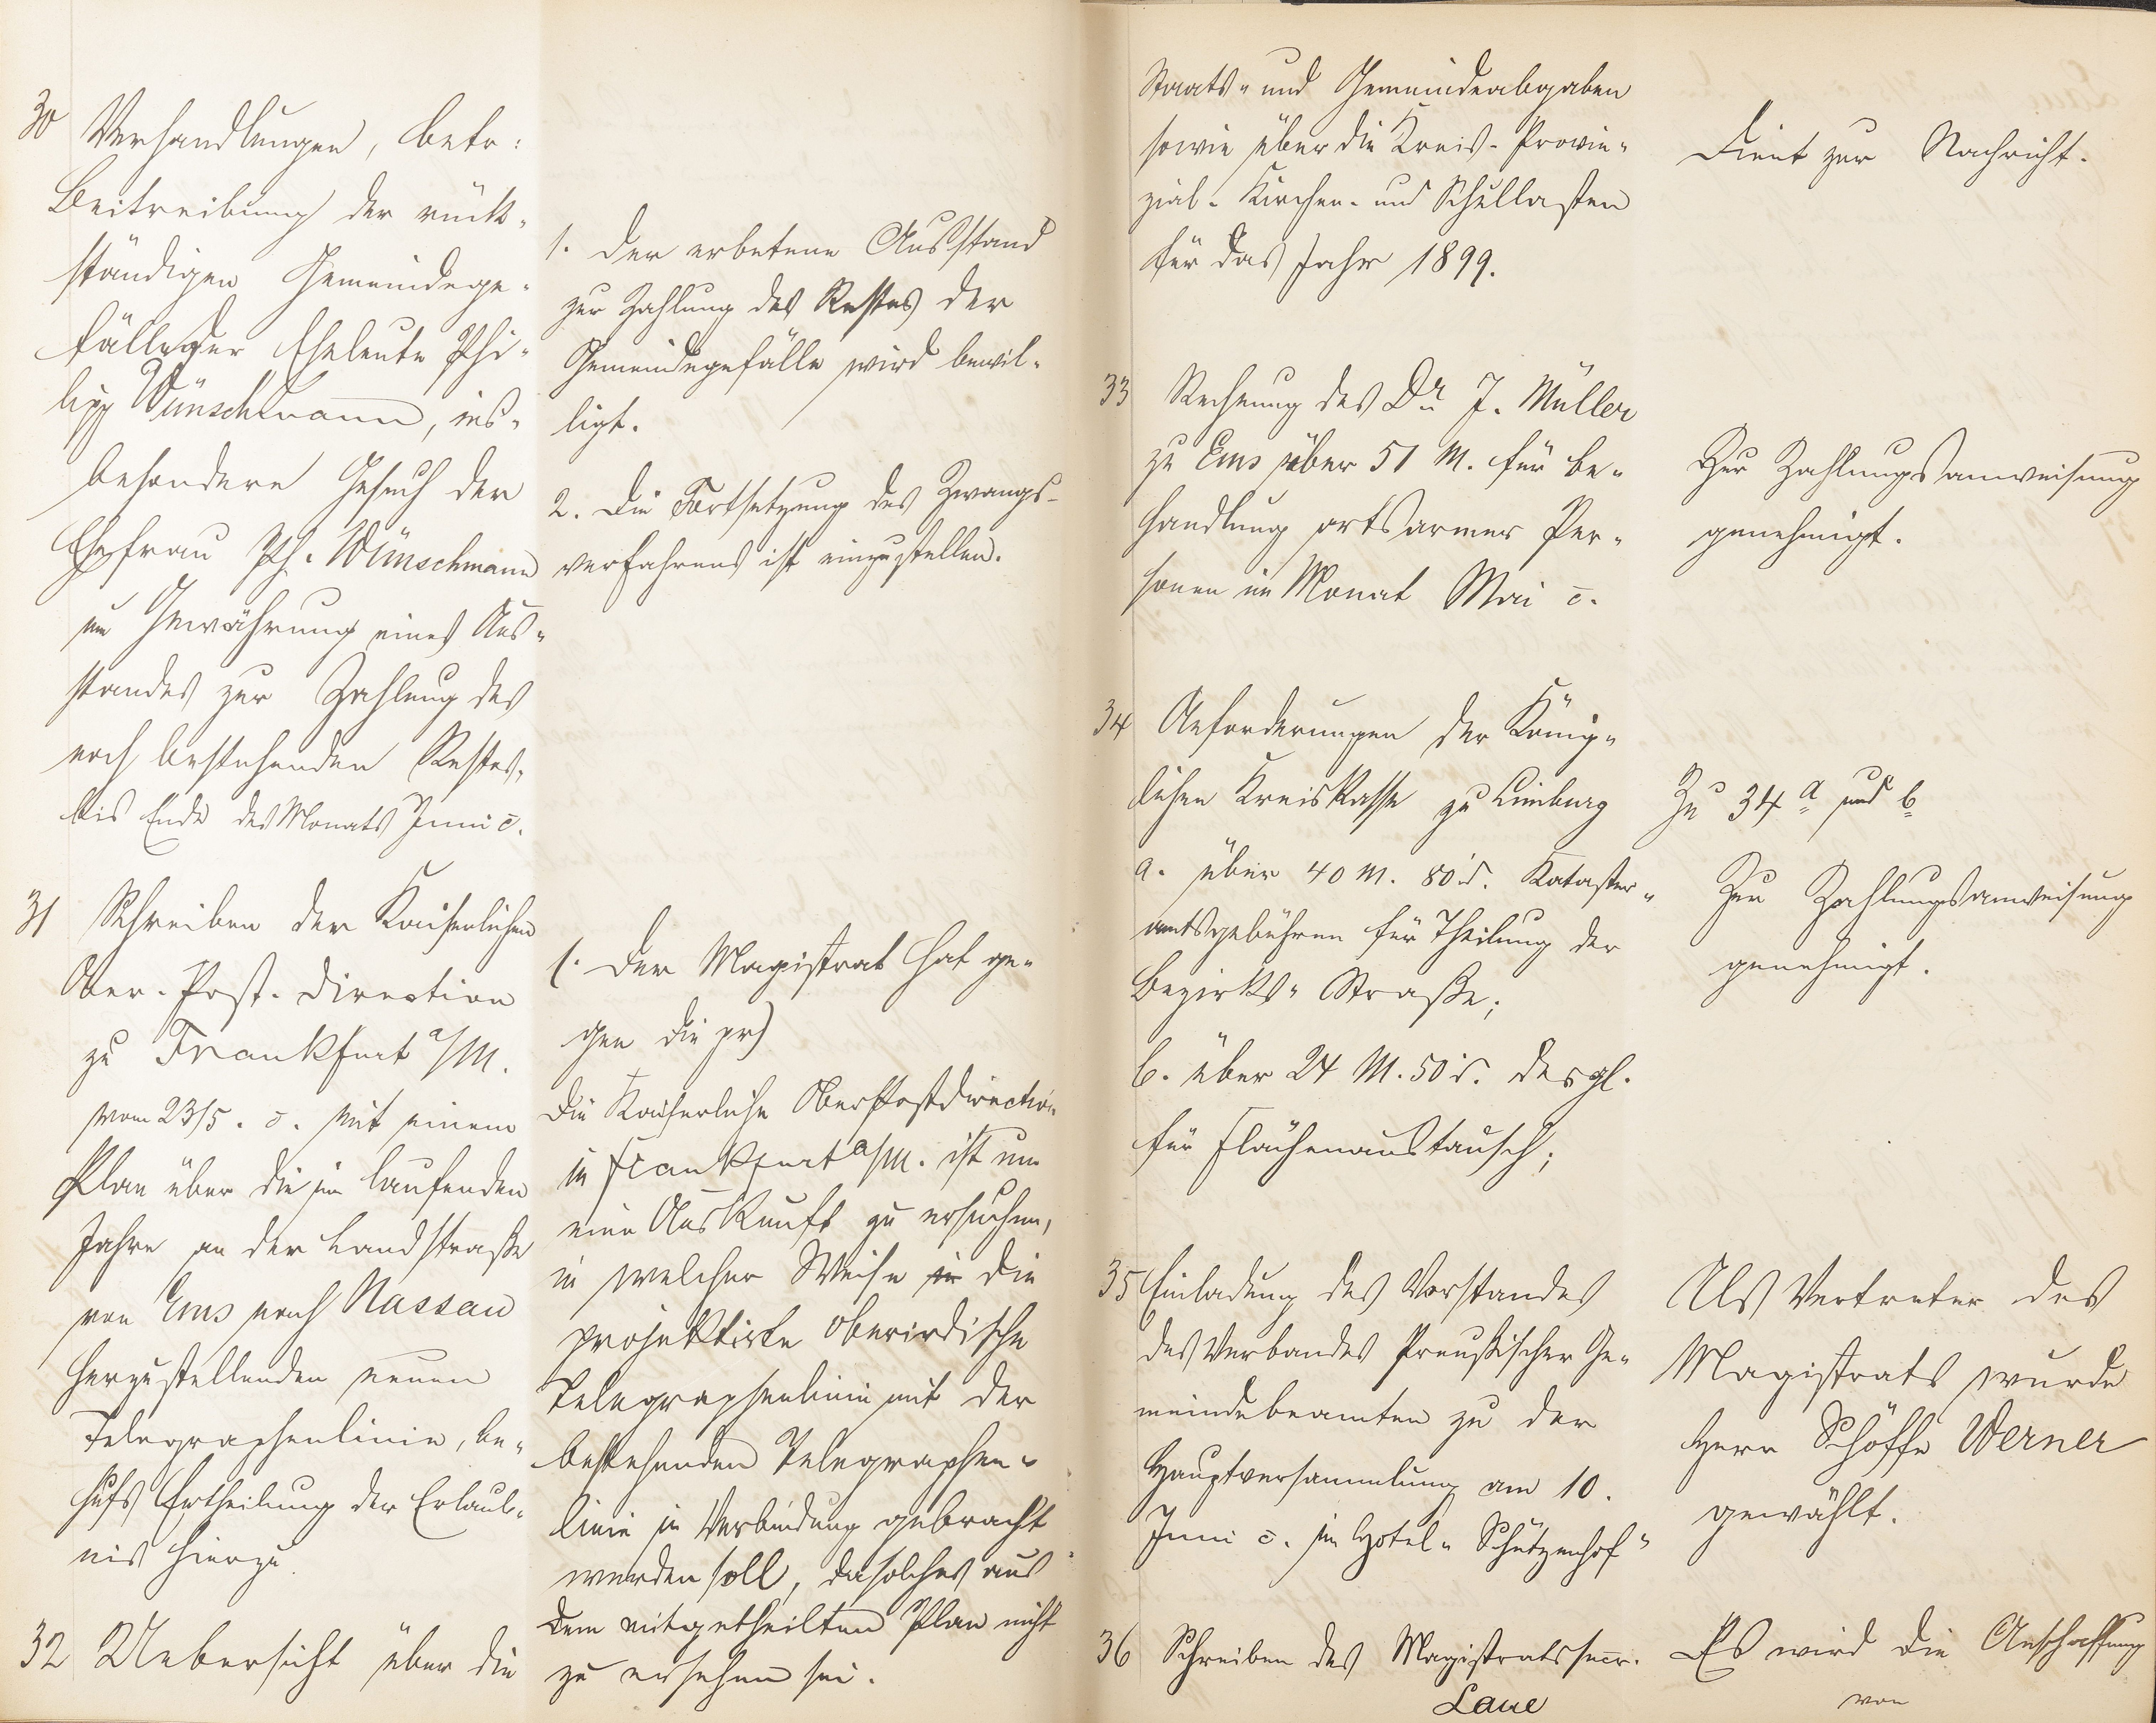 30 Verhandlungen, betr:
Beitreibung der rück-
ständigen Gemeindege-
fälle der Eheleute Phi-
lipp Wünschmann, ins-
besondere Gesuch der
Ehefrau Ph. Wünschmann
um Gewährung eines Aus-
standes zur Zahlung des
noch bestehenden Restes,
bis Ende des Monats Juni c.
1. Der erbetene Ausstand
zur Zahlung des Restes der
Gemeindegefälle wird bewil-
ligt.
2. Die Fortsetzung des Zwangs-
verfahrens ist einzustellen.
31 Schreiben der Kaiserlichen
Ober-Post-Direction
zu Frankfurt a/M.
vom 23/5. c. mit einem
Plan über die im laufenden
Jahre an der Landstraße
von Ems nach Nassau
herzustellenden neuen
Telegraphenlinie, be-
hufs Ertheilung der Erlaub-
nis hierzu.
1. Der Magistrat hat ge-
gen die pr)
Die Kaiserliche Oberpostdirection
in Frankfurt a/M. ist um
eine Auskunft zu ersuchen,
in welcher Weise in die
projektirte oberirdische
Telegraphenlinie mit der
bestehenden Telegraphen-
linie in Verbindung gebracht
werden soll, da solches aus
dem mitgetheilten Plan nicht
zu ersehen sei.
32 Uebersicht über die
Staats- und Gemeindeabgaben
sowie über die Kreis- Provin-
zial- Kirchen- und Schullasten
für das Jahr 1899.
Dient zur Nachricht.
33 Rechnung des Dr. J. Müller
zu Ems über 51 M. für be-
handlung ortsarmer Per-
sonen im Monat Mai c.
Zur Zahlungsanweisung
genehmigt.
34 Anforderungen der König-
lichen Kreiskasse zu Limburg
a. über 40 M. 80 d. Kataster-
amtsgebühren für Theilung der
Bezirks-Straße;
b. über 24 M. 50 d. desgl.
für Flächenaustausch;
Zu 34 a und b
Zur Zahlungsanweisung
genehmigt.
35 Einladung des Vorstandes
des Verbandes Preußischer Ge-
meindebeamten zu der
Hauptversammlung am 10.
Juni c. im Hotel "Schützenhof"
Als Vertreter des
Magistrats wurde
Herr Schöffe Werner
gewählt.
36 Schreiben des Magistratssecr.
Laue
Es wird die Anschaffung
von